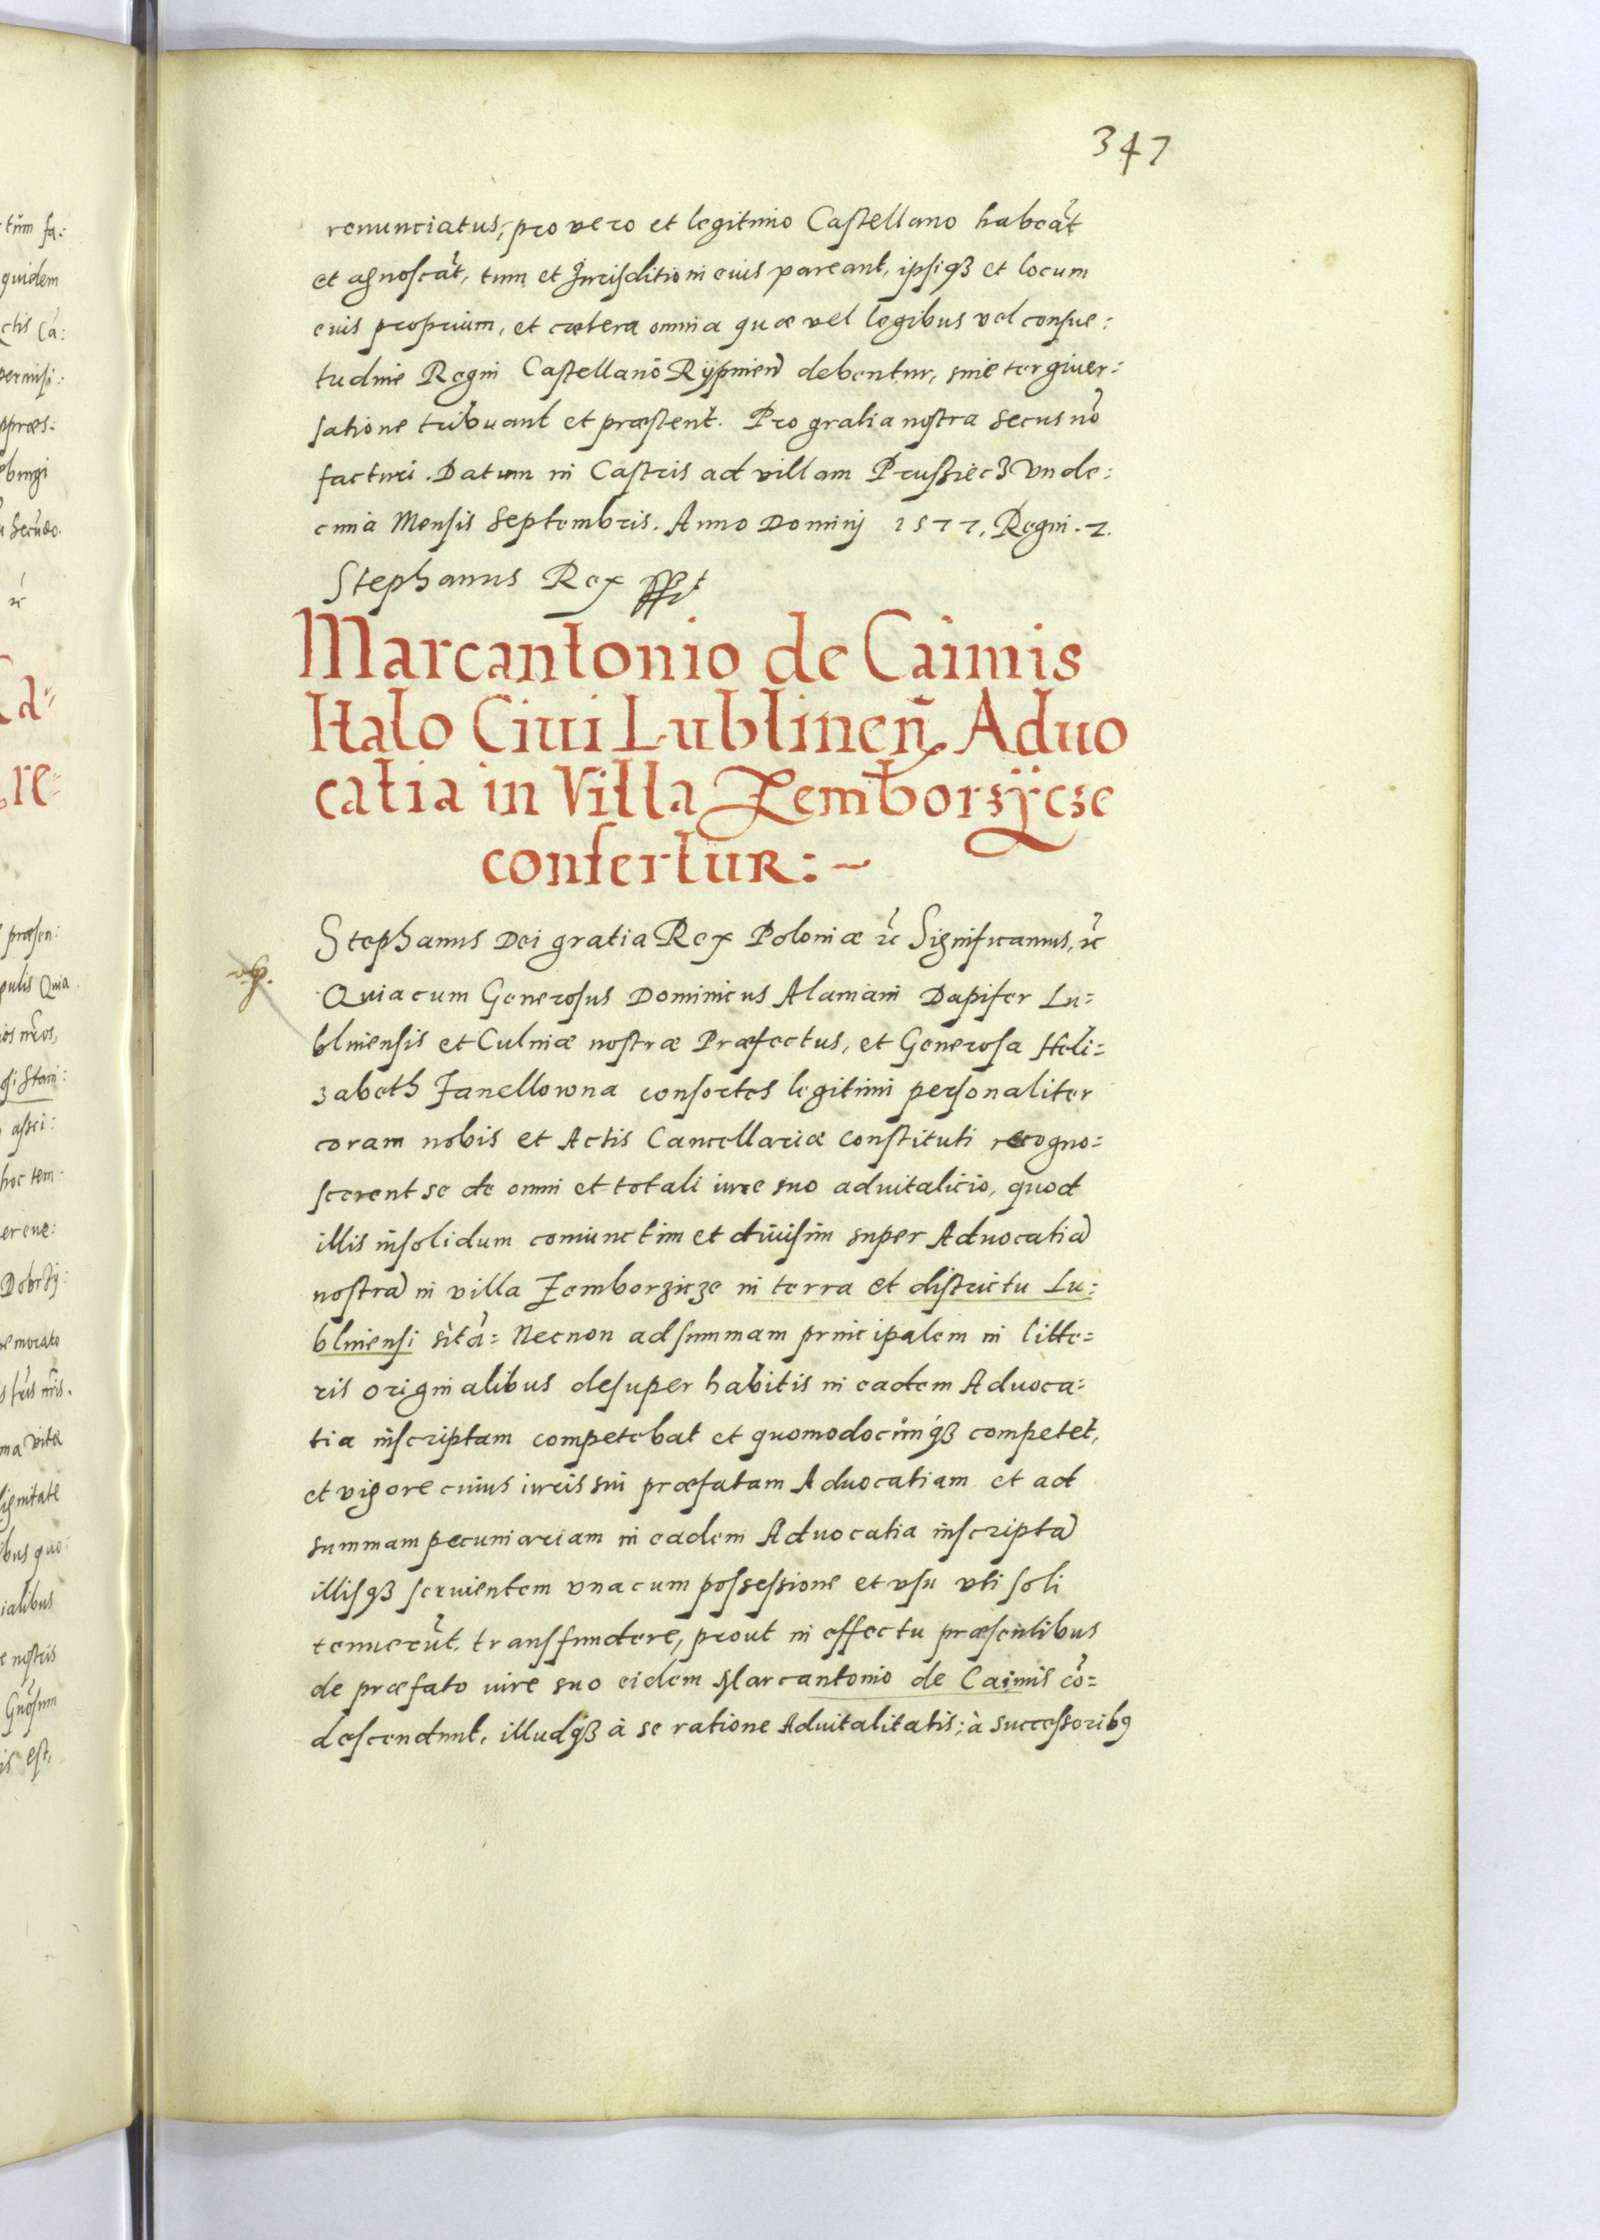 347
renunciatus, pro vero et legitimo Castellano habeāt
et agnoscāt, tum et Jurisditioni eius pareant, ipsiqȝ et locum
eius proprium, et cætera omnia quæ vel legibus vel consue:
tudine Regni Castellanō Rÿpinen̄ debentur, sine tergiuer:
satione tribuant et præstent. Pro gratia nostra secus nō
facturi. Datum in Castris ad villam Prussiecȝ Vnde:
cima Mensis Septembris. Anno Dominij 1577, Regni. 2.
Stephanus Rex sspt
Marcantonio de Caimis
Italo Ciui Lublineñ Aduo
catia in Villa Zemborzÿcze
confertur: ~
Stephanus Dei gratia Rex Poloniæ ꝛc̄ Significamus, ꝛc̄
Quia cum Generosus Dominicus Alamani Dapifer Lu=
blinensis et Culinæ nostræ Præfectus, et Generosa Heli=
zabeth Janellowna consortes legitimi personaliter
coram nobis et Actis Cancellariæ constituti recogno=
scerent se de omni et totali iure suo aduitalicio, quod
illis insolidum coniunctim et diuisim super Aduocatiā
nostrā in villa Zemborzicze in terra et districtu Lu:
blinensi sitā= Necnon ad summam principalem in litte=
ris originalibus desuper habitis in eadem Aduoca=
tia inscriptam competebat et quomodocūnqȝ competet,
et vigore cuius iuris sui præfatam Aduocatiam et ad
summam pecuniariam in eadem Aduocatia inscriptā
illisqȝ seruientem vna cum possessione et vsu vti soli
tenuerūt, transfundere, prout in effectu præsentibus
de præfato iure suo eidem Marcantonio de Caimis cō=
descendunt, illudqȝ à se ratione Aduitalitatis; à successoribꝯ